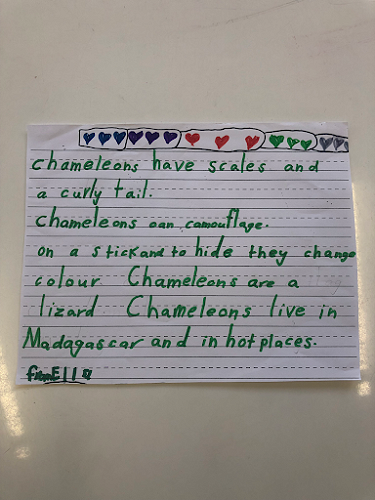 chameleons have scales and
a curly tail.
chameleons can camouflage.
on a stick and to hide they change
colour Chameleons are a
lizard. Chameleons live in
Madagascar and in hot places.
from Ella